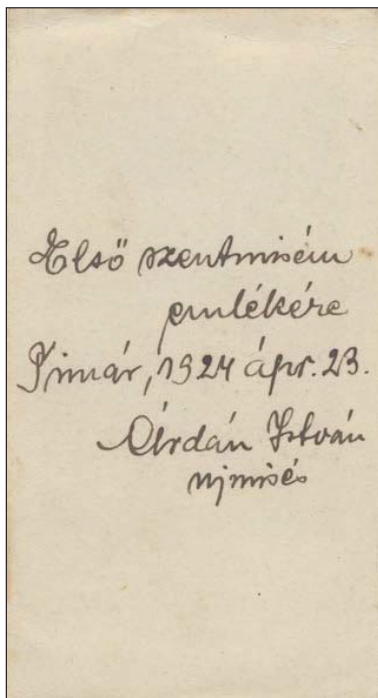 Első szentmisém
emlékére
Timár, 1924 ápr. 23.
Árdán István
ujmisés